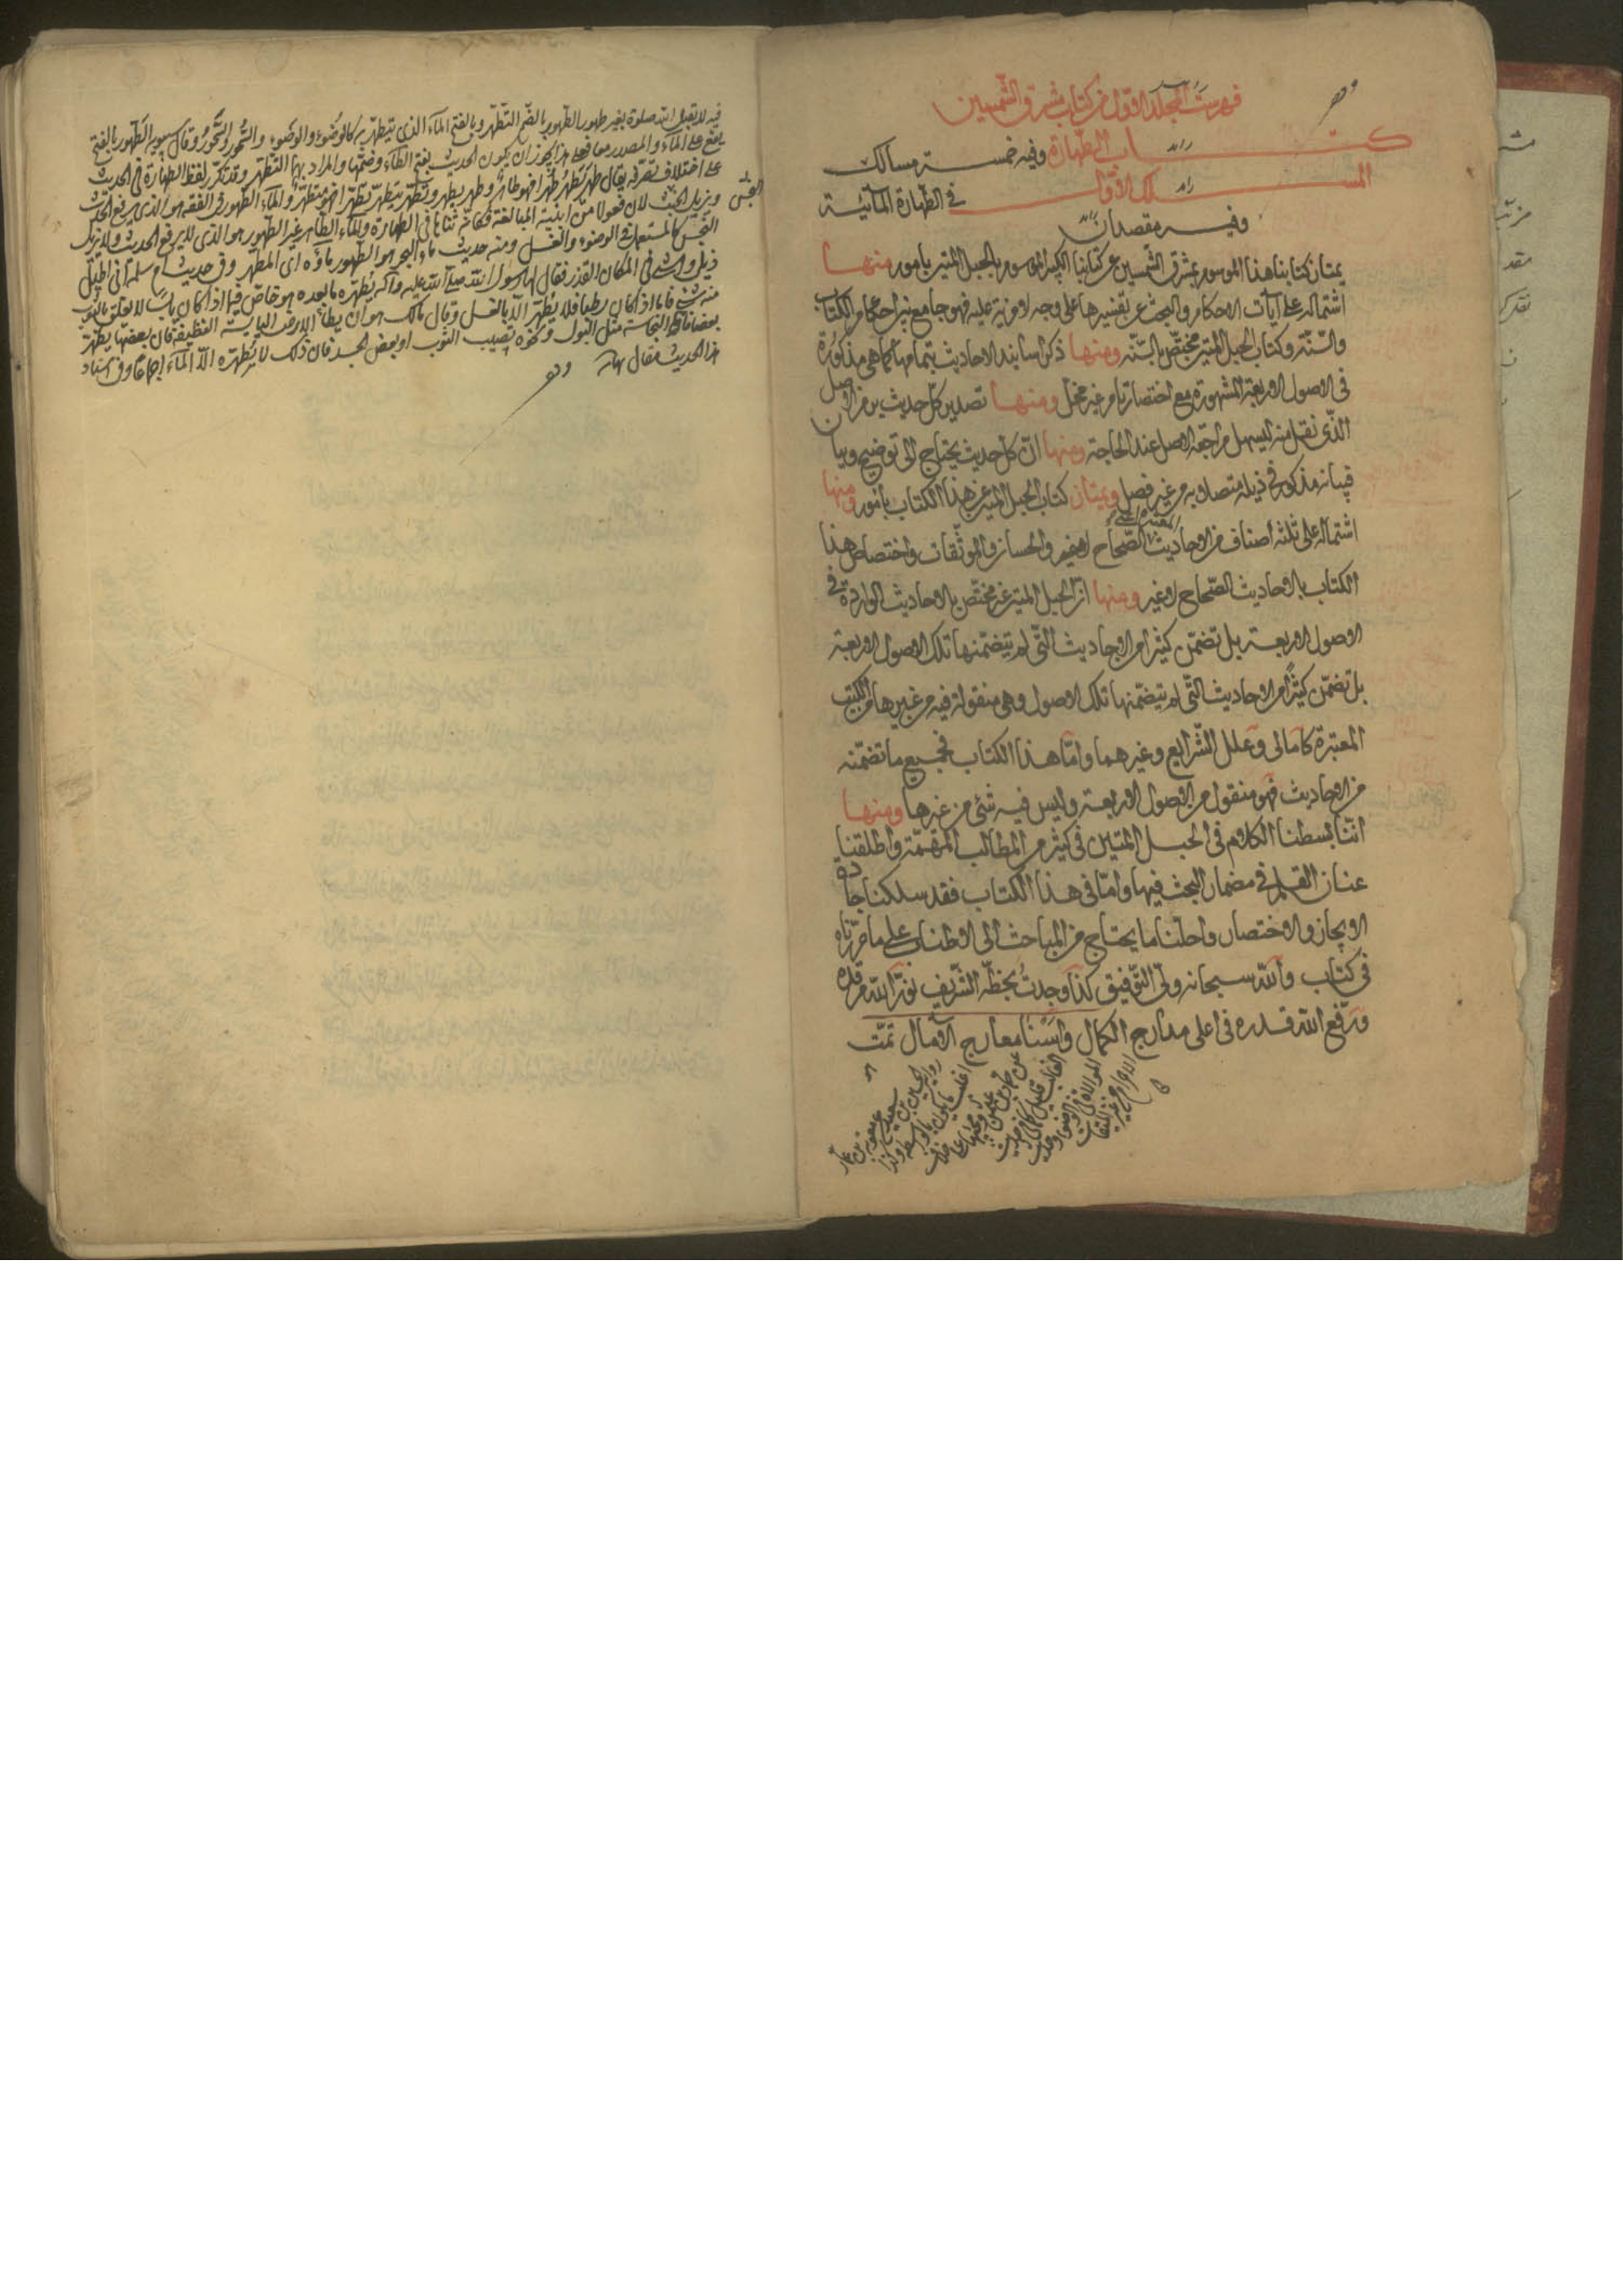 فهرست المجلد الاول من كتاب مشرق الشمسين
كتاب الطهارة وفيه خمسة مسالك
المسلك الاول في الطهارة المائية
وفيه مقصدان
يمتاز كتابنا هذا الموسوم بمشرق الشمسين عن كتابنا الكبير الموسوم بالحبل المتين بامور منها
اشتماله على آيات الاحكام والبحث عن تفسيرها على وجه لا مزيد عليه فهو جامع بين احكام الكتاب
والسّنّة وكتاب الحبل المتين مختصّ بالسّنّة ومنها ذكر اسانيد الاحاديث بتمامها كما هى مذكورة
فى الاصول الاربعة المشهورة مع اختصار تام غير مخل ومنها تصدير كل حديث بمن الاصل
الّذى نقل منه ليسهل مراجعة الاصل عند الحاجة ومنها انّ كل حديث يحتاج الى توضيح وبيان
فبيانه مذكور فى ذيله متصلا به من غير فصل ويمتاز كتاب الحبل المتين عن هذا الكتاب بامور منها
اشتماله على ثلثة اصناف من الاحاديث المعتبرة اعنى الصّحاح والحسان والموثّقات واختصاص هذا
الكتاب بالاحاديث الصّحاح لا غير ومنها انّ الحبل المتين غير مختصّ بالاحاديث الواردة فى
الاصول الاربعة بل تضمّن كثيرا من الاحاديث الّتى لم يتضمّنها تلك الاصول الاربعة
بل تضمّن كثيرًا من الاحاديث الّتى لم يتضمّنها تلك الاصول وهى منقولة فيه من غيرها من الكتب
المعتبرة كامالى وعلل الشّرايع وغيرهما وامّا هذا الكتاب فجميع ما تضمّنه
من الاحاديث فهو منقول من الاصول الاربعة وليس فيه شئ من غيرها ومنها
انّنا بسطنا الكلام فى الحبل المتين فى كثير من المطالب المهمّة واطلقنا
عنان القلم فى مضمار البحث فيها وامّا فى هذا الكتاب فقد سلكنا جادة
الايجاز والاختصار واحلنا ما يحتاج من المباحث الى الاطناب على ما حرّرناه
فى كتاب والله سبحانه ولىّ التّوفيق كذا وجدتُ بخطّه الشّريف نوّر الله مرقده
ورفع الله قدره فى اعلى مدارج الكمال واسنا معارج الآمال تمّت
فيه لا يقبل الله صلوة بغير طهور الطهور بالضم التطهّر وبالفتح الماء الذى يتطهّر به كالوُضوء والوَضوء والسُّحور والسَّحور وقال سيبويه الطَّهور بالفتح
يقع على الماء والمصدر معا فعلى هذا يجوز ان يكون الحديث بفتح الطاء وضمّها والمراد بهما التطهّر وقد تكرّر لفظ الطهارة فى الحديث
على اختلاف تصرّفه يقال طهر يطهر طُهرا فهو طاهر وطهر يطهر وتطهّر يتطهّر تطهّرا فهو متطهّر والماء الطهور فى الفقه هو الذى يرفع الحدث
ويزيل النجس لان فعولا من ابنية المبالغة فكانّه تناهى فى الطهارة والماء الطاهر غير الطهور هو الذى لا يرفع الحدث ولا يزيل
النجس كالمستعمل فى الوضوء والغسل ومنه حديث ماء البحر هو الطهور ماؤه اى المطهّر وفى حديث ام سلمة انى اطيل
ذيلى وامشى فى المكان القذر فقال لها رسول الله صلى الله عليه وآله يُطهّره ما بعده هو خاصّ فيما اذا كان يابسا لا يعلق بالثوب
منه شئ فاما اذا كان رطبا فلا يُطهّر الّا بالغسل وقال مالك هو ان يطأ الارض اليابسة النظيفة فان بعضها يطهّر
بعضا فاما النجاسة مثل البول ونحوه تصيب الثوب او بعض الجسد فان ذلك لا يُطهّره الّا الماء اجماعا وفى اسناد
هذا الحديث مقال